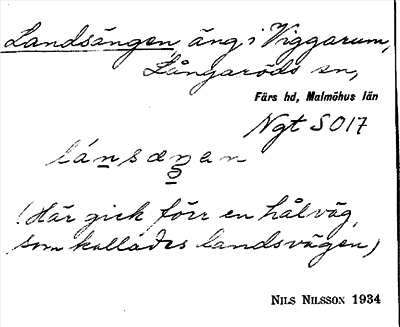 Landsängen, äng i Viggarum,
Långaröds sn,
Färs hd, Malmöhus län
Ngt S017
(Här gick förr en hålväg,
som kallades landsvägen)
NILS NILSSON 1934